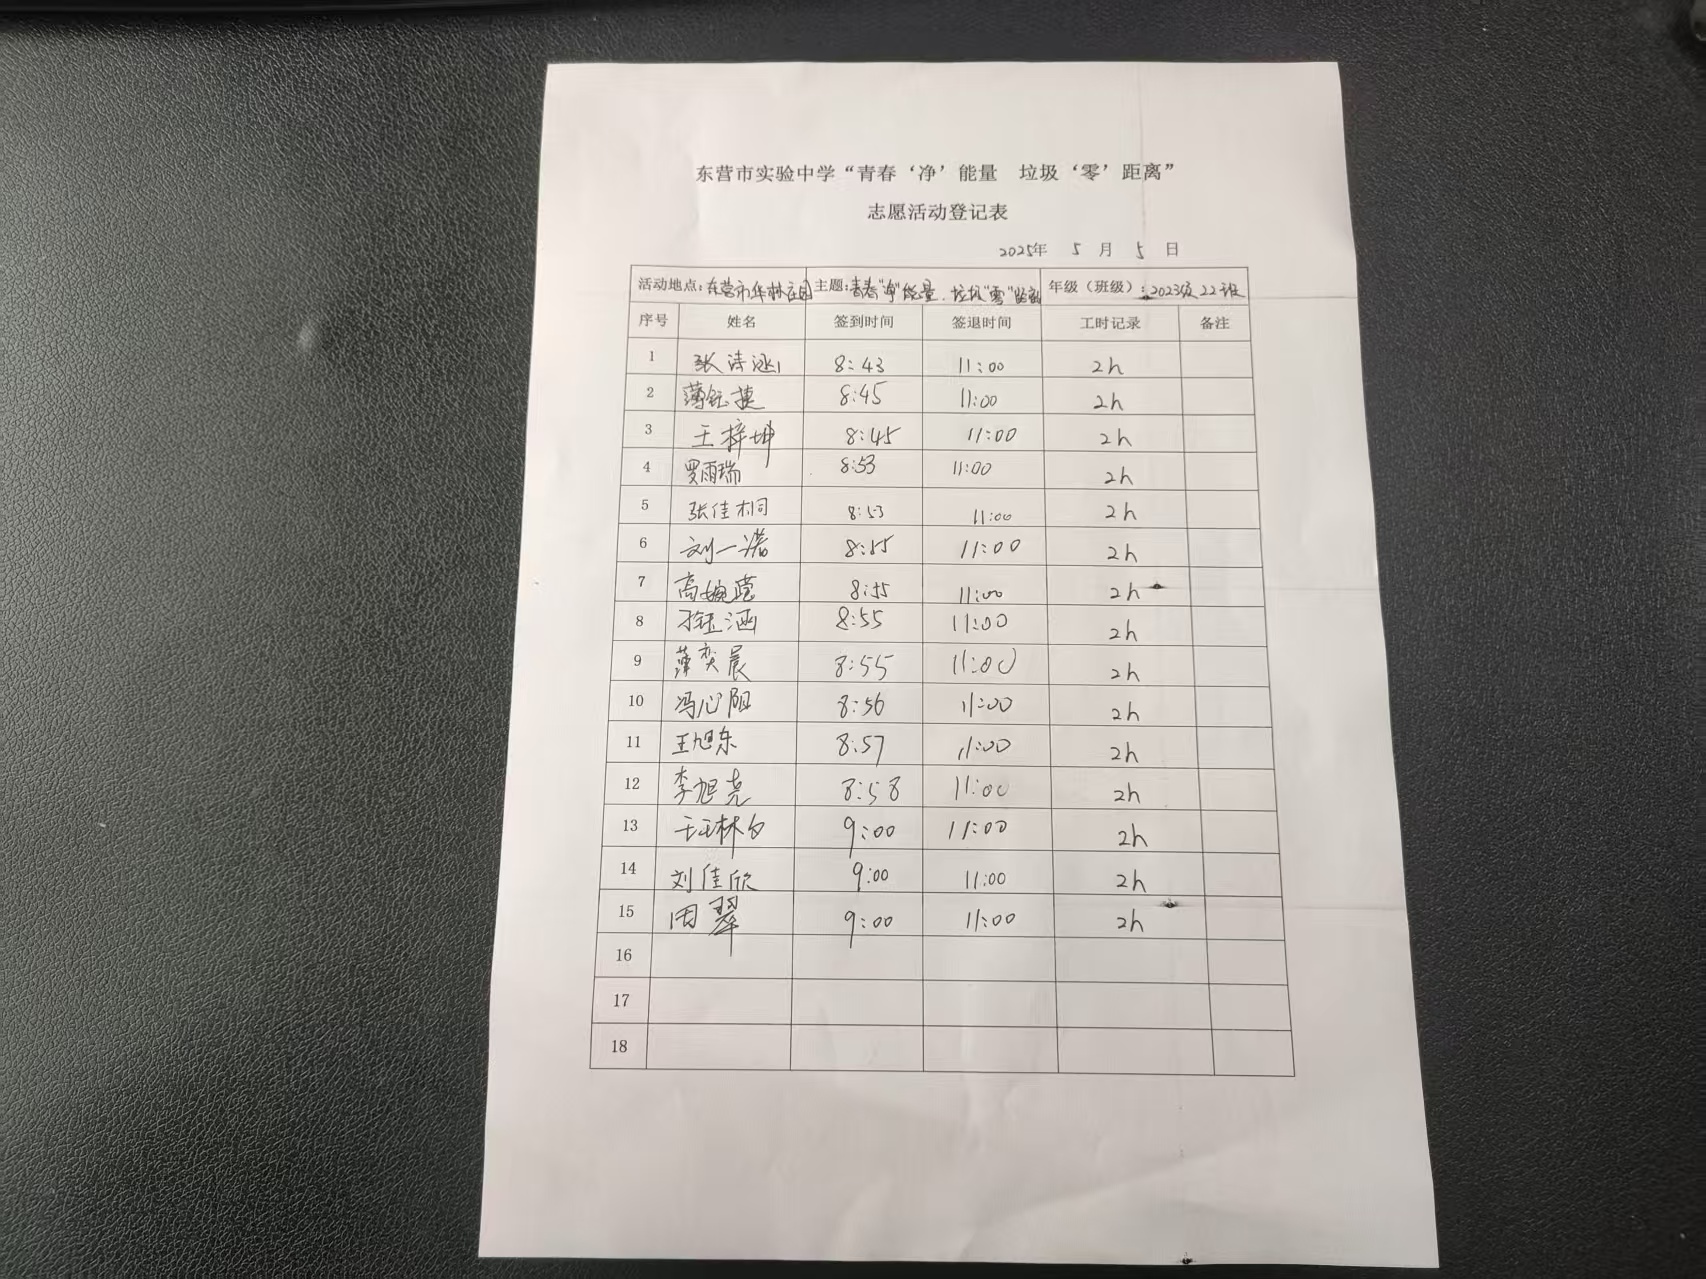 东营市实验中学“青春‘净’能量 垃圾‘零’距离”
志愿活动登记表
2025年 5 月 5 日
活动地点:东营市华林庄园 主题:青春"净"能量.垃圾"零"距离 年级（班级）:2023级22班
序号 姓名 签到时间 签退时间 工时记录 备注
1 张涛涵 8:43 11:00 2h
2 薄钰捷 8:45 11:00 2h
3 王梓坤 8:45 11:00 2h
4 罗雨瑞 8:53 11:00 2h
5 张佳桐 8:53 11:00 2h
6 刘一诺 8:55 11:00 2h
7 高婉莹 8:55 11:00 2h
8 徐钰涵 8:55 11:00 2h
9 薄奕晨 8:55 11:00 2h
10 冯心阳 8:56 11:00 2h
11 王旭东 8:57 11:00 2h
12 李旭尧 8:58 11:00 2h
13 9:00 11:00 2h
14 刘佳欣 9:00 11:00 2h
15 田翠 9:00 11:00 2h
16
17
18